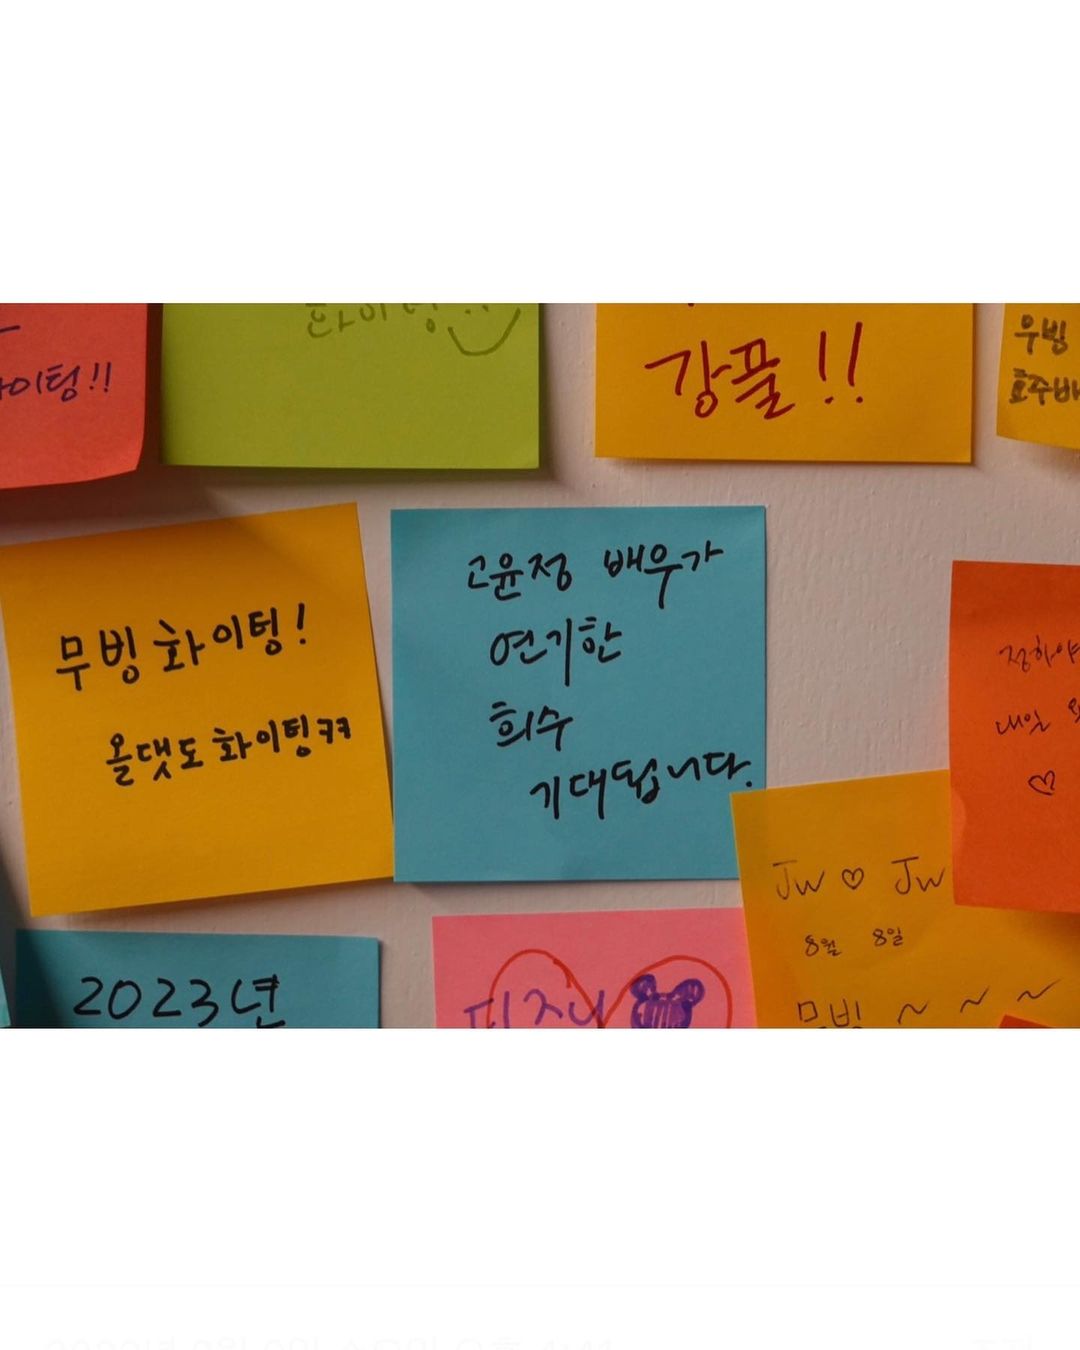 이팅!!
화이팅!!
강풀!!
우빙
호주
무빙 화이팅!
올댓도 화이팅ㅋㅋ
고윤정 배우가
연기한
희수
기대됩니다.
정하야
내일
♡
JW ♡ JW
8월 8일
무빙 ~ ~ ~
2023년
디즈니